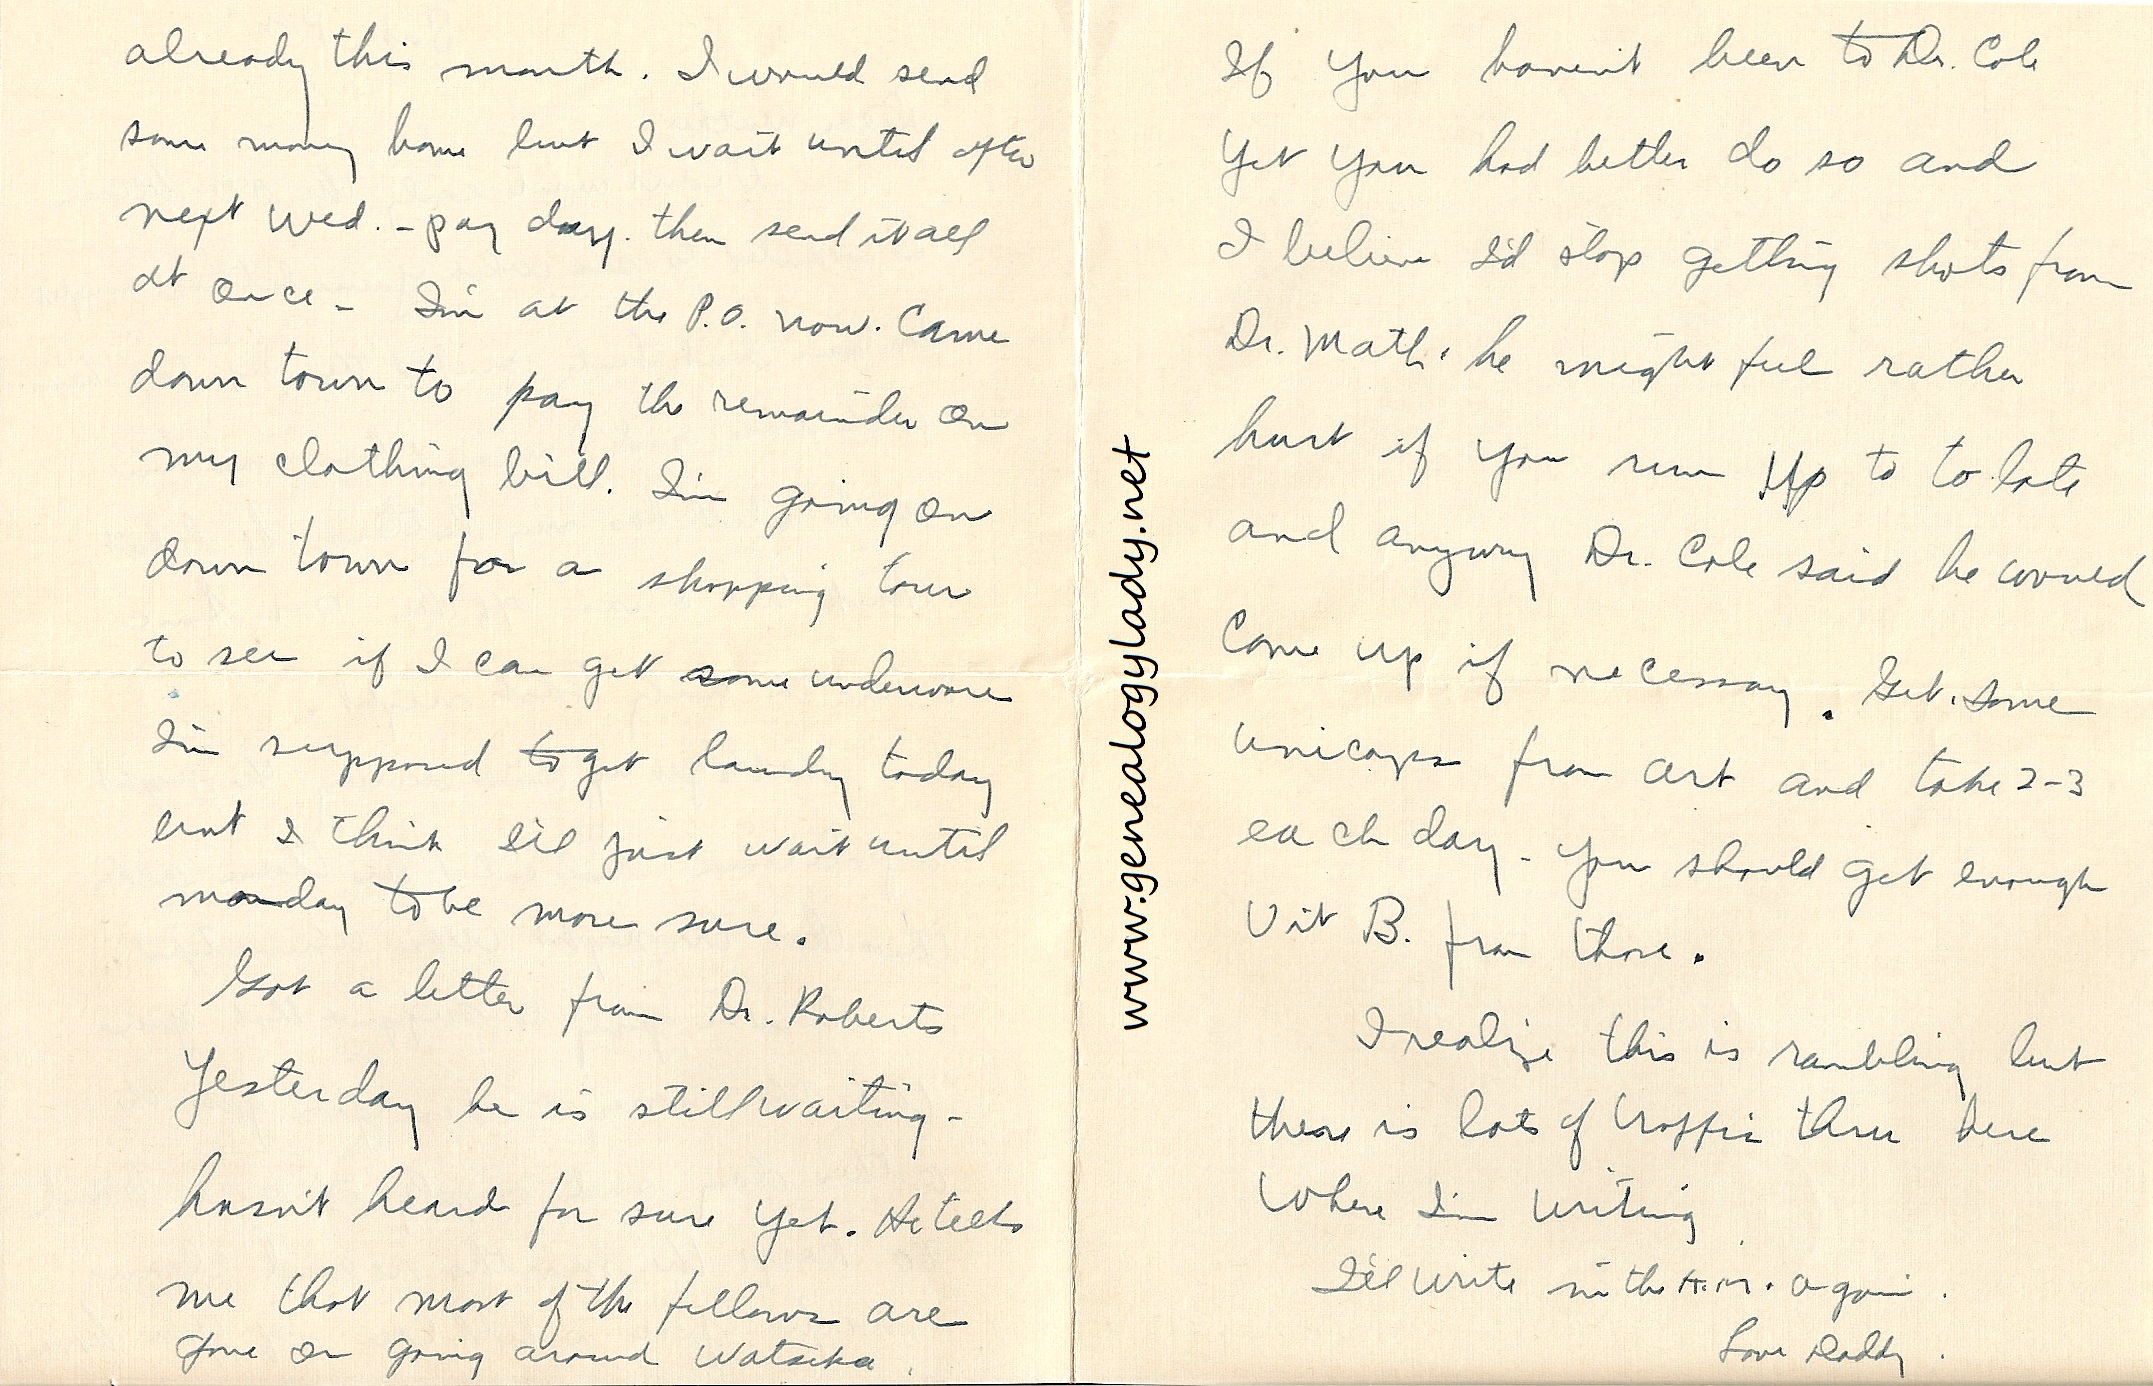 already this month. I would send
some money home but I wait until after
next Wed. - pay day. then send it all
at once - I'm at the P.O. now. Came
down town to pay the remainder on
my clothing bill. I'm going on
down town for a shopping tour
to see if I can get some underware
I'm supposed to get laundry today
but I think I'll just wait until
monday to be more sure.
Got a letter from Dr. Roberts
Yesterday he is still waiting -
hasn't heard for sure yet. He tells
me that most of the fellows are
gone or going around Watseka.
If you haven't been to Dr. Cole
Yet you had better do so and
I believe I'd stop getting shots from
Dr. Math. he might feel rather
hurt if you run Up to to late
and anyway Dr. Cole said he would
Come up if necessary. Get some
unicaps from art and take 2-3
each day - you should get enough
Vit B. from those.
I realize this is rambling but
there is lots of traffic thru here
Where I'm writing
I'll write in the A.M. again.
Love Daddy.
www.genealogylady.net